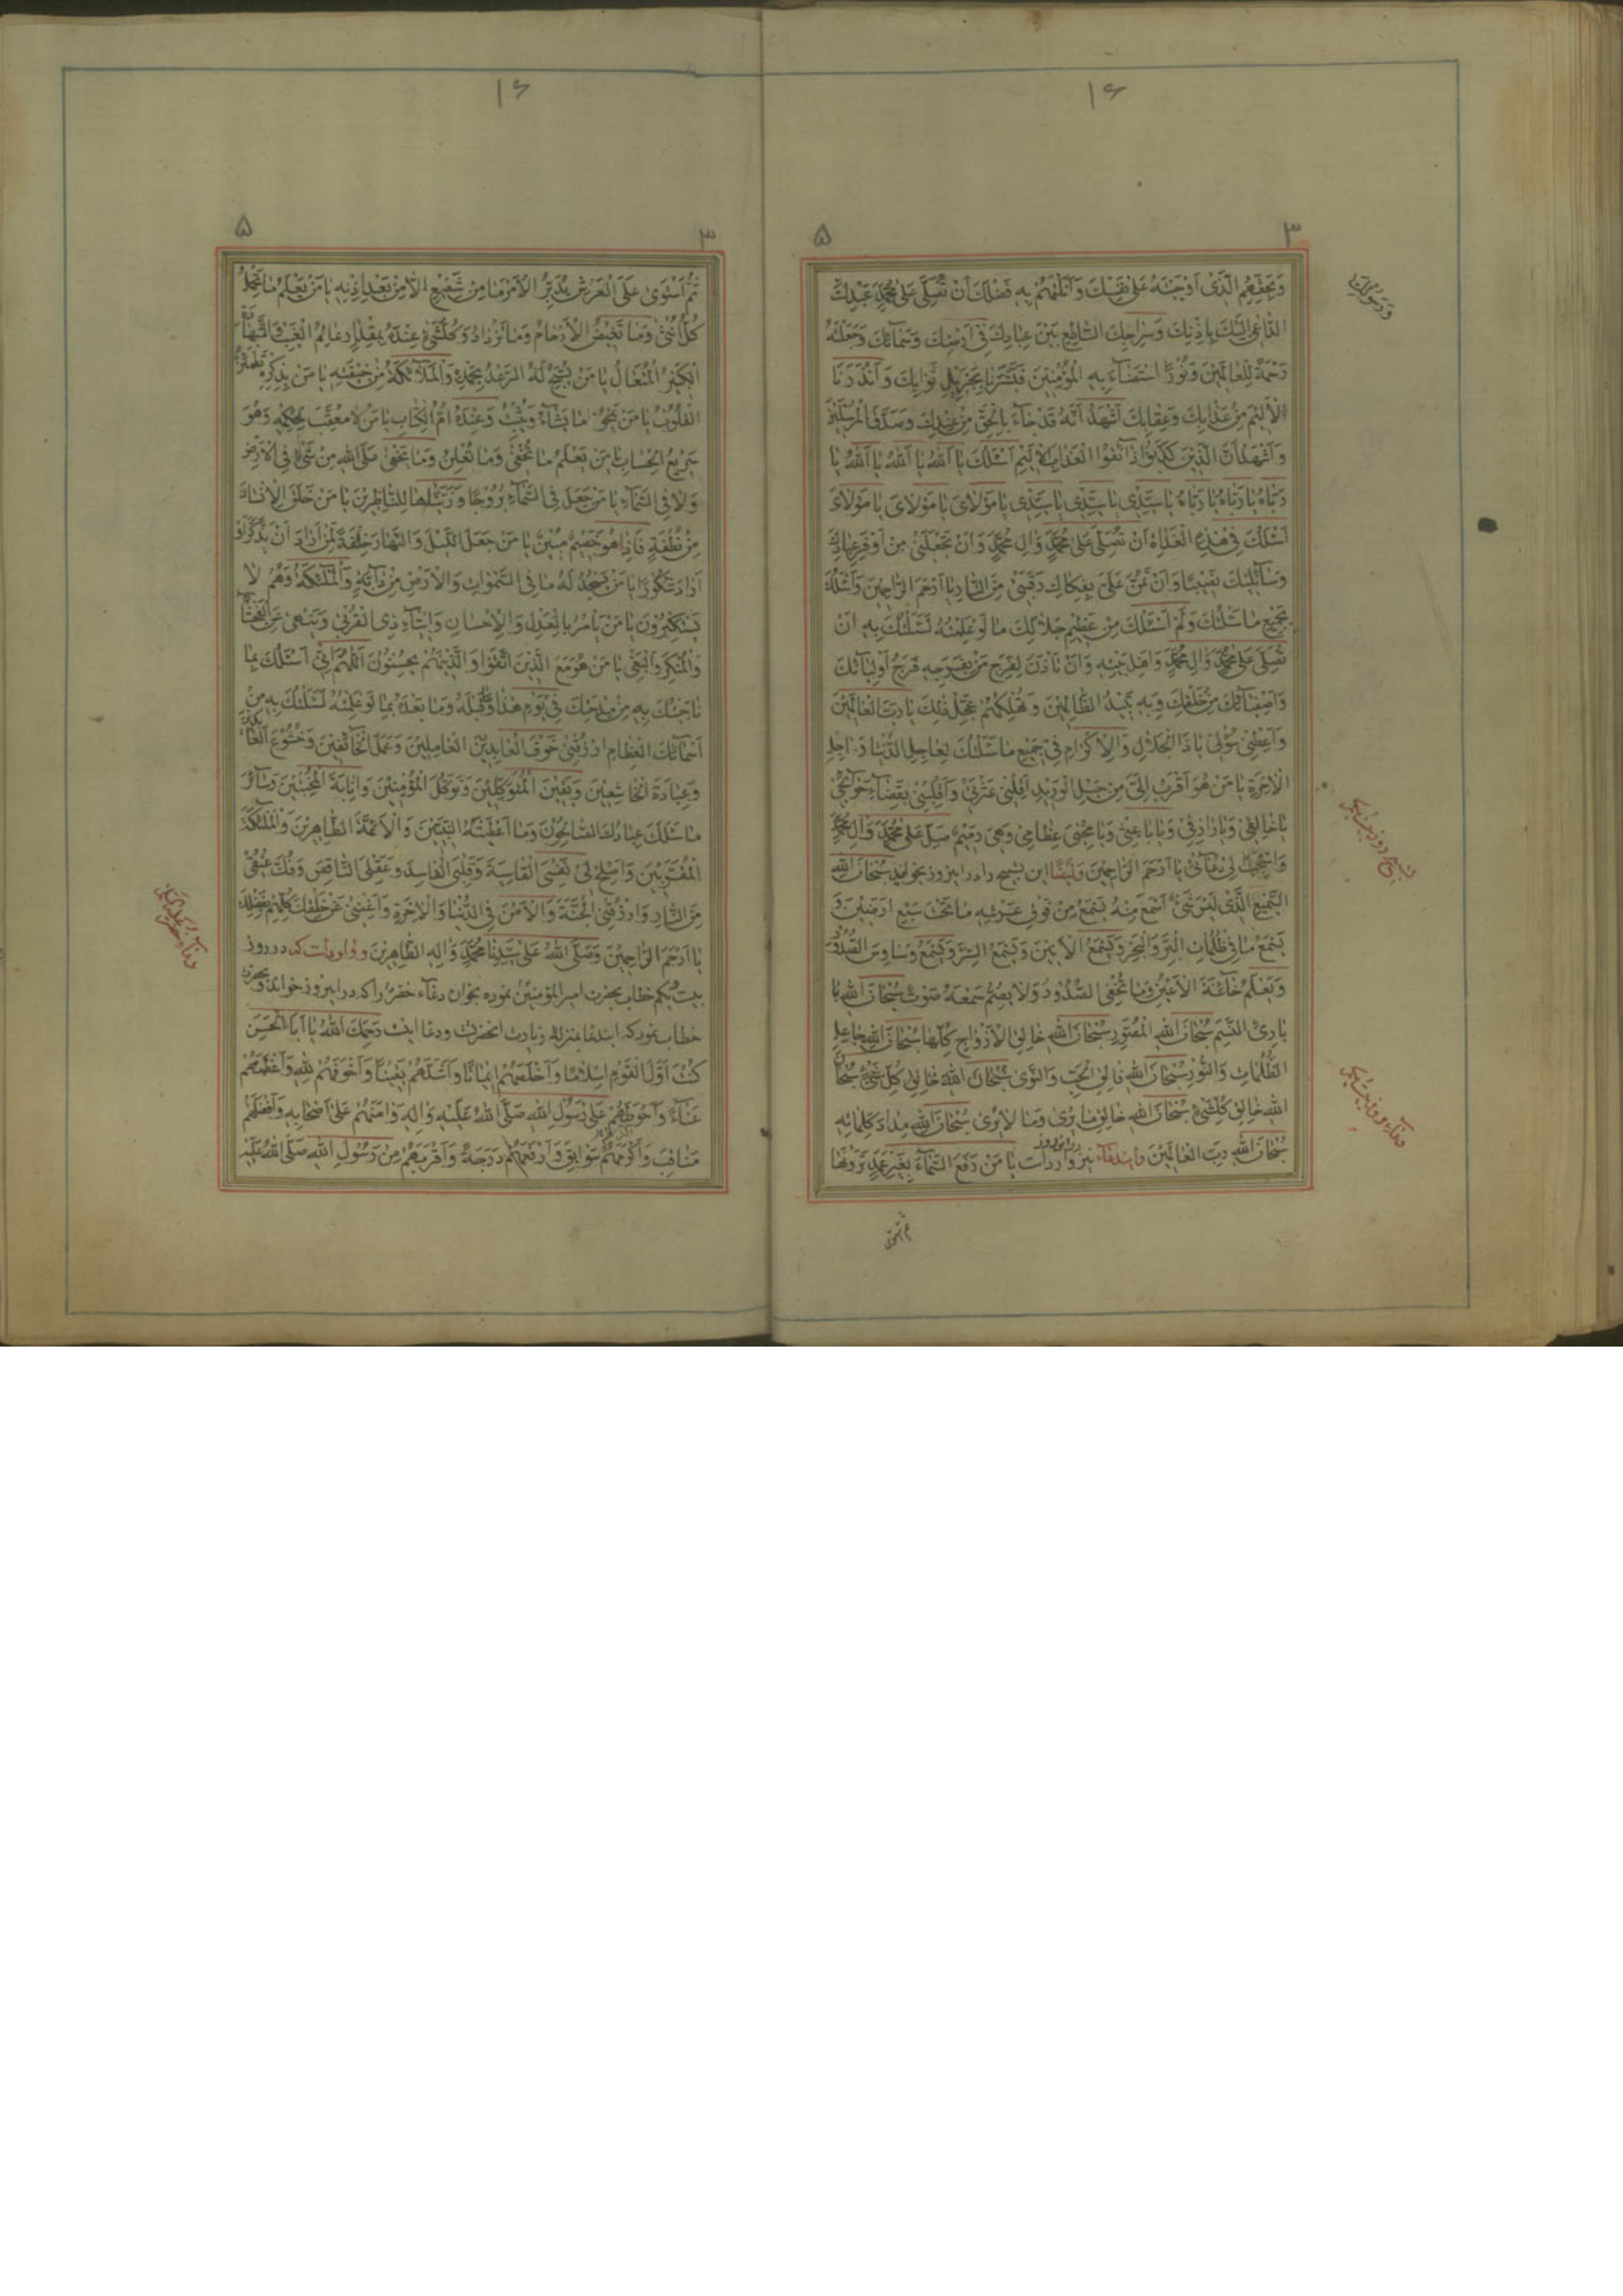 ۱۶
۳ ۵
وَبِحَقِّهِمُ الَّذي اَوْجَبْتَهُ عَلى نَفْسِكَ وَاَنَلْتَهُمْ بِهِ فَضْلَكَ اَنْ تُصَلِّيَ عَلى مُحَمَّدٍ عَبْدِكَ
الدّاعي اِلَيْكَ بِاِذْنِكَ وَسِراجِكَ السّاطِعِ بَيْنَ عِبادِكَ في اَرْضِكَ وَسَمآئِكَ وَجَعَلْتَهُ
رَحْمَةً لِلْعالَمينَ وَنُورًا اسْتَضآءَ بِهِ الْمُؤْمِنينَ فَبَشَّرَنا بِجَزيلِ ثَوابِكَ وَاَنْذَرَنَا
الْاَليمَ مِنْ عَذابِكَ وَعِقابِكَ اَشْهَدُ اَنَّهُ قَدْ جآءَ بِالْحَقِّ مِنْ عِنْدِكَ وَصَدَّقَ الْمُرْسَلينَ
وَاَشْهَدُ اَنَّ الَّذينَ كَذَّبُوا ذآئِقُوا الْعَذابِ الْاَليمِ اَسْئَلُكَ يا اَللهُ يا اَللهُ يا اَللهُ يا
رَبّاهُ يا رَبّاهُ يا رَبّاهُ يا سَيِّدي يا سَيِّدي يا سَيِّدي يا مَوْلايَ يا مَوْلايَ يا مَوْلايَ
اَسْئَلُكَ في هذِهِ الْغَداةِ اَنْ تُصَلِّيَ عَلى مُحَمَّدٍ وَالِ مُحَمَّدٍ وَاَنْ تَجْعَلَني مِنْ اَوْفَرِ عِبادِكَ
وَسآئِليكَ نَصيبًا وَاَنْ تَمُنَّ عَلَيَّ بِفِكاكِ رَقَبَتي مِنَ النّارِ يا اَرْحَمَ الرّاحِمينَ وَاَسْئَلُكَ
بِجَميعِ ما سَئَلْتُكَ وَلَمْ اَسْئَلْكَ مِنْ عَظيمِ جَلالِكَ ما لَوْ عَلِمْتُهُ لَسَئَلْتُكَ بِهِ اَنْ
تُصَلِّيَ عَلى مُحَمَّدٍ وَالِ مُحَمَّدٍ وَاَهْلِ بَيْتِهِ وَاَنْ تَاْذَنَ لِفَرَجِ مَنْ بِفَرَجِهِ فَرَجُ اَوْلِيآئِكَ
وَاَصْفِيآئِكَ مِنْ خَلْقِكَ وَبِهِ تُبيدُ الظّالِمينَ وَتُهْلِكُهُمْ عَجِّلْ ذلِكَ يا رَبَّ الْعالَمينَ
وَاَعْطِني سُؤْلي يا ذَا الْجَلالِ وَالْاِكْرامِ في جَميعِ ما سَئَلْتُكَ لِعاجِلِ الدُّنْيا وَاجِلِ
الْاخِرَةِ يا مَنْ هُوَ اَقْرَبُ اِلَيَّ مِنْ حَبْلِ الْوَريدِ اَقِلْني عَثْرَتي وَاَقْلِبْني بِقَضآءِ حَوآئِجي
يا خالِقي وَيا رازِقي وَيا باعِثي وَيا مُحْيِيَ عِظامي وَهِيَ رَميمٌ صَلِّ عَلى مُحَمَّدٍ وَالِ مُحَمَّدٍ
وَاسْتَجِبْ لي دُعآئي يا اَرْحَمَ الرّاحِمينَ وَاَيْضًا اين تسبيح را در اين روز بخواند سُبْحانَ اللهِ
السَّميعِ الَّذي لَيْسَ شَيْءٌ اَسْمَعَ مِنْهُ يَسْمَعُ مِنْ فَوْقِ عَرْشِهِ ما تَحْتَ سَبْعِ اَرَضينَ وَ
يَسْمَعُ ما في ظُلُماتِ الْبَرِّ وَالْبَحْرِ وَيَسْمَعُ الْاَنينَ وَيَسْمَعُ السِّرَّ وَيَسْمَعُ وَساوِسَ الصُّدُورِ
وَيَعْلَمُ خآئِنَةَ الْاَعْيُنِ وَما تُخْفِي الصُّدُورُ وَلا يُصِمُّ سَمْعَهُ صَوْتٌ سُبْحانَ اللهِ
بارِئِ النَّسَمِ سُبْحانَ اللهِ الْمُصَوِّرِ سُبْحانَ اللهِ خالِقِ الْاَزْواجِ كُلِّها سُبْحانَ اللهِ جاعِلِ
الظُّلُماتِ وَالنُّورِ سُبْحانَ اللهِ فالِقِ الْحَبِّ وَالنَّوى سُبْحانَ اللهِ خالِقِ كُلِّ شَيْءٍ سُبْحانَ
اللهِ خالِقِ كُلِّ شَيْءٍ سُبْحانَ اللهِ خالِقِ ما يُرى وَما لا يُرى سُبْحانَ اللهِ مِدادَ كَلِماتِهِ
سُبْحانَ اللهِ رَبِّ الْعالَمينَ واين دعآء نيز در اين روز وارد است يا مَنْ رَفَعَ السَّمآءَ بِغَيْرِ عَمَدٍ تَرَوْنَها
ثم استوى
۱۶
۳ ۵
ثُمَّ اسْتَوى عَلَى الْعَرْشِ يُدَبِّرُ الْاَمْرَ ما مِنْ شَفيعٍ اِلاّ مِنْ بَعْدِ اِذْنِهِ يا مَنْ يَعْلَمُ ما تَحْمِلُ
كُلُّ اُنْثى وَما تَغيضُ الْاَرْحامُ وَما تَزْدادُ وَكُلُّ شَيْءٍ عِنْدَهُ بِمِقْدارٍ عالِمُ الْغَيْبِ وَالشَّهادَةِ
الْكَبيرُ الْمُتَعالُ يا مَنْ يُسَبِّحُ لَهُ الرَّعْدُ بِحَمْدِهِ وَالْمَلآئِكَةُ مِنْ خيفَتِهِ يا مَنْ بِذِكْرِهِ تَطْمَئِنُّ
الْقُلُوبُ يا مَنْ يَمْحُو ما يَشآءُ وَيُثْبِتُ وَعِنْدَهُ اُمُّ الْكِتابِ يا مَنْ لا مُعَقِّبَ لِحُكْمِهِ وَهُوَ
سَريعُ الْحِسابِ يا مَنْ يَعْلَمُ ما نُخْفي وَما نُعْلِنُ وَما يَخْفى عَلَى اللهِ مِنْ شَيْءٍ فِي الْاَرْضِ
وَلا فِي السَّمآءِ يا مَنْ جَعَلَ فِي السَّمآءِ بُرُوجًا وَزَيَّنَها لِلنّاظِرينَ يا مَنْ خَلَقَ الْاِنْسانَ
مِنْ نُطْفَةٍ فَاِذا هُوَ خَصيمٌ مُبينٌ يا مَنْ جَعَلَ اللَّيْلَ وَالنَّهارَ خِلْفَةً لِمَنْ اَرادَ اَنْ يَذَّكَّرَ اَوْ
اَرادَ شُكُورًا يا مَنْ يَسْجُدُ لَهُ ما فِي السَّمواتِ وَالْاَرْضِ مِنْ دآبَّةٍ وَالْمَلئِكَةُ وَهُمْ لا
يَسْتَكْبِرُونَ يا مَنْ يَاْمُرُ بِالْعَدْلِ وَالْاِحْسانِ وَايتآءِ ذِي الْقُرْبى وَيَنْهى عَنِ الْفَحْشآءِ
وَالْمُنْكَرِ وَالْبَغْيِ يا مَنْ هُوَ مَعَ الَّذينَ اتَّقَوْا وَالَّذينَهُمْ مُحْسِنُونَ اَللّهُمَّ اِنّي اَسْئَلُكَ بِما
ناجَيْتُكَ بِهِ مِنْ مِدْحَتِكَ في يَوْمي هذا وَما قَبْلَهُ وَما بَعْدَهُ بِما لَوْ عَلِمْتُهُ لَسَئَلْتُكَ بِهِ مِنْ
اَسْمآئِكَ الْعِظامِ ارْزُقْني خَوْفَ الْعابِدينَ الْعامِلينَ وَعَمَلَ الْخآئِفينَ وَخُشُوعَ الْعابِدينَ
وَعِبادَةَ الْخاشِعينَ وَيَقينَ الْمُتَوَكِّلينَ وَتَوَكُّلَ الْمُؤْمِنينَ وَاِنابَةَ الْمُخْبِتينَ وَسآئِرَ
ما سَئَلَكَ عِبادُكَ الصّالِحُونَ وَما اَعْطَيْتَهُ النَّبِيّينَ وَالْاَئِمَّةَ الطّاهِرينَ وَالْمَلئِكَةَ
الْمُقَرَّبينَ وَاَصْلِحْ لي نَفْسِيَ الْقاسِيَةَ وَقَلْبِيَ الْفاسِدَ وَعَقْلِيَ النّاقِصَ وَفُكَّ عُنُقي
مِنَ النّارِ وَارْزُقْنِي الْجَنَّةَ وَالْاَمْنَ فِي الدُّنْيا وَالْاخِرَةِ وَاَغْنِني عَنْ خَلْقِكَ كُلِّهِمْ بِفَضْلِكَ
يا اَرْحَمَ الرّاحِمينَ وَصَلَّى اللهُ عَلى سَيِّدِنا مُحَمَّدٍ وَالِهِ الطّاهِرينَ و وارد است كه در روز
بيست ويكم خطاب بحضرت امير المؤمنين نموده بخوان دعآء خضر را كه در اين روز خوانده وبحضرت
خطاب نمود كه ابن دعا بمنزلهٔ زيارت انحضرت ودعا اينست رَحِمَكَ اللهُ يا اَبَا الْحَسَنِ
كُنْتَ اَوَّلَ الْقَوْمِ اِسْلامًا وَاَخْلَصَهُمْ ايمانًا وَاَشَدَّهُمْ يَقينًا وَاَخْوَفَهُمْ لِلّهِ وَاَعْظَمَهُمْ
عَنآءً وَاَحْوَطَهُمْ عَلى رَسُولِ اللهِ صَلَّى اللهُ عَلَيْهِ وَالِهِ وَامَنَهُمْ عَلى اَصْحابِهِ وَاَفْضَلَهُمْ
مَناقِبَ وَاَكْرَمَهُمْ سَوابِقَ وَاَرْفَعَهُمْ دَرَجَةً وَاَقْرَبَهُمْ مِنْ رَسُولِ اللهِ صَلَّى اللهُ عَلَيْهِ